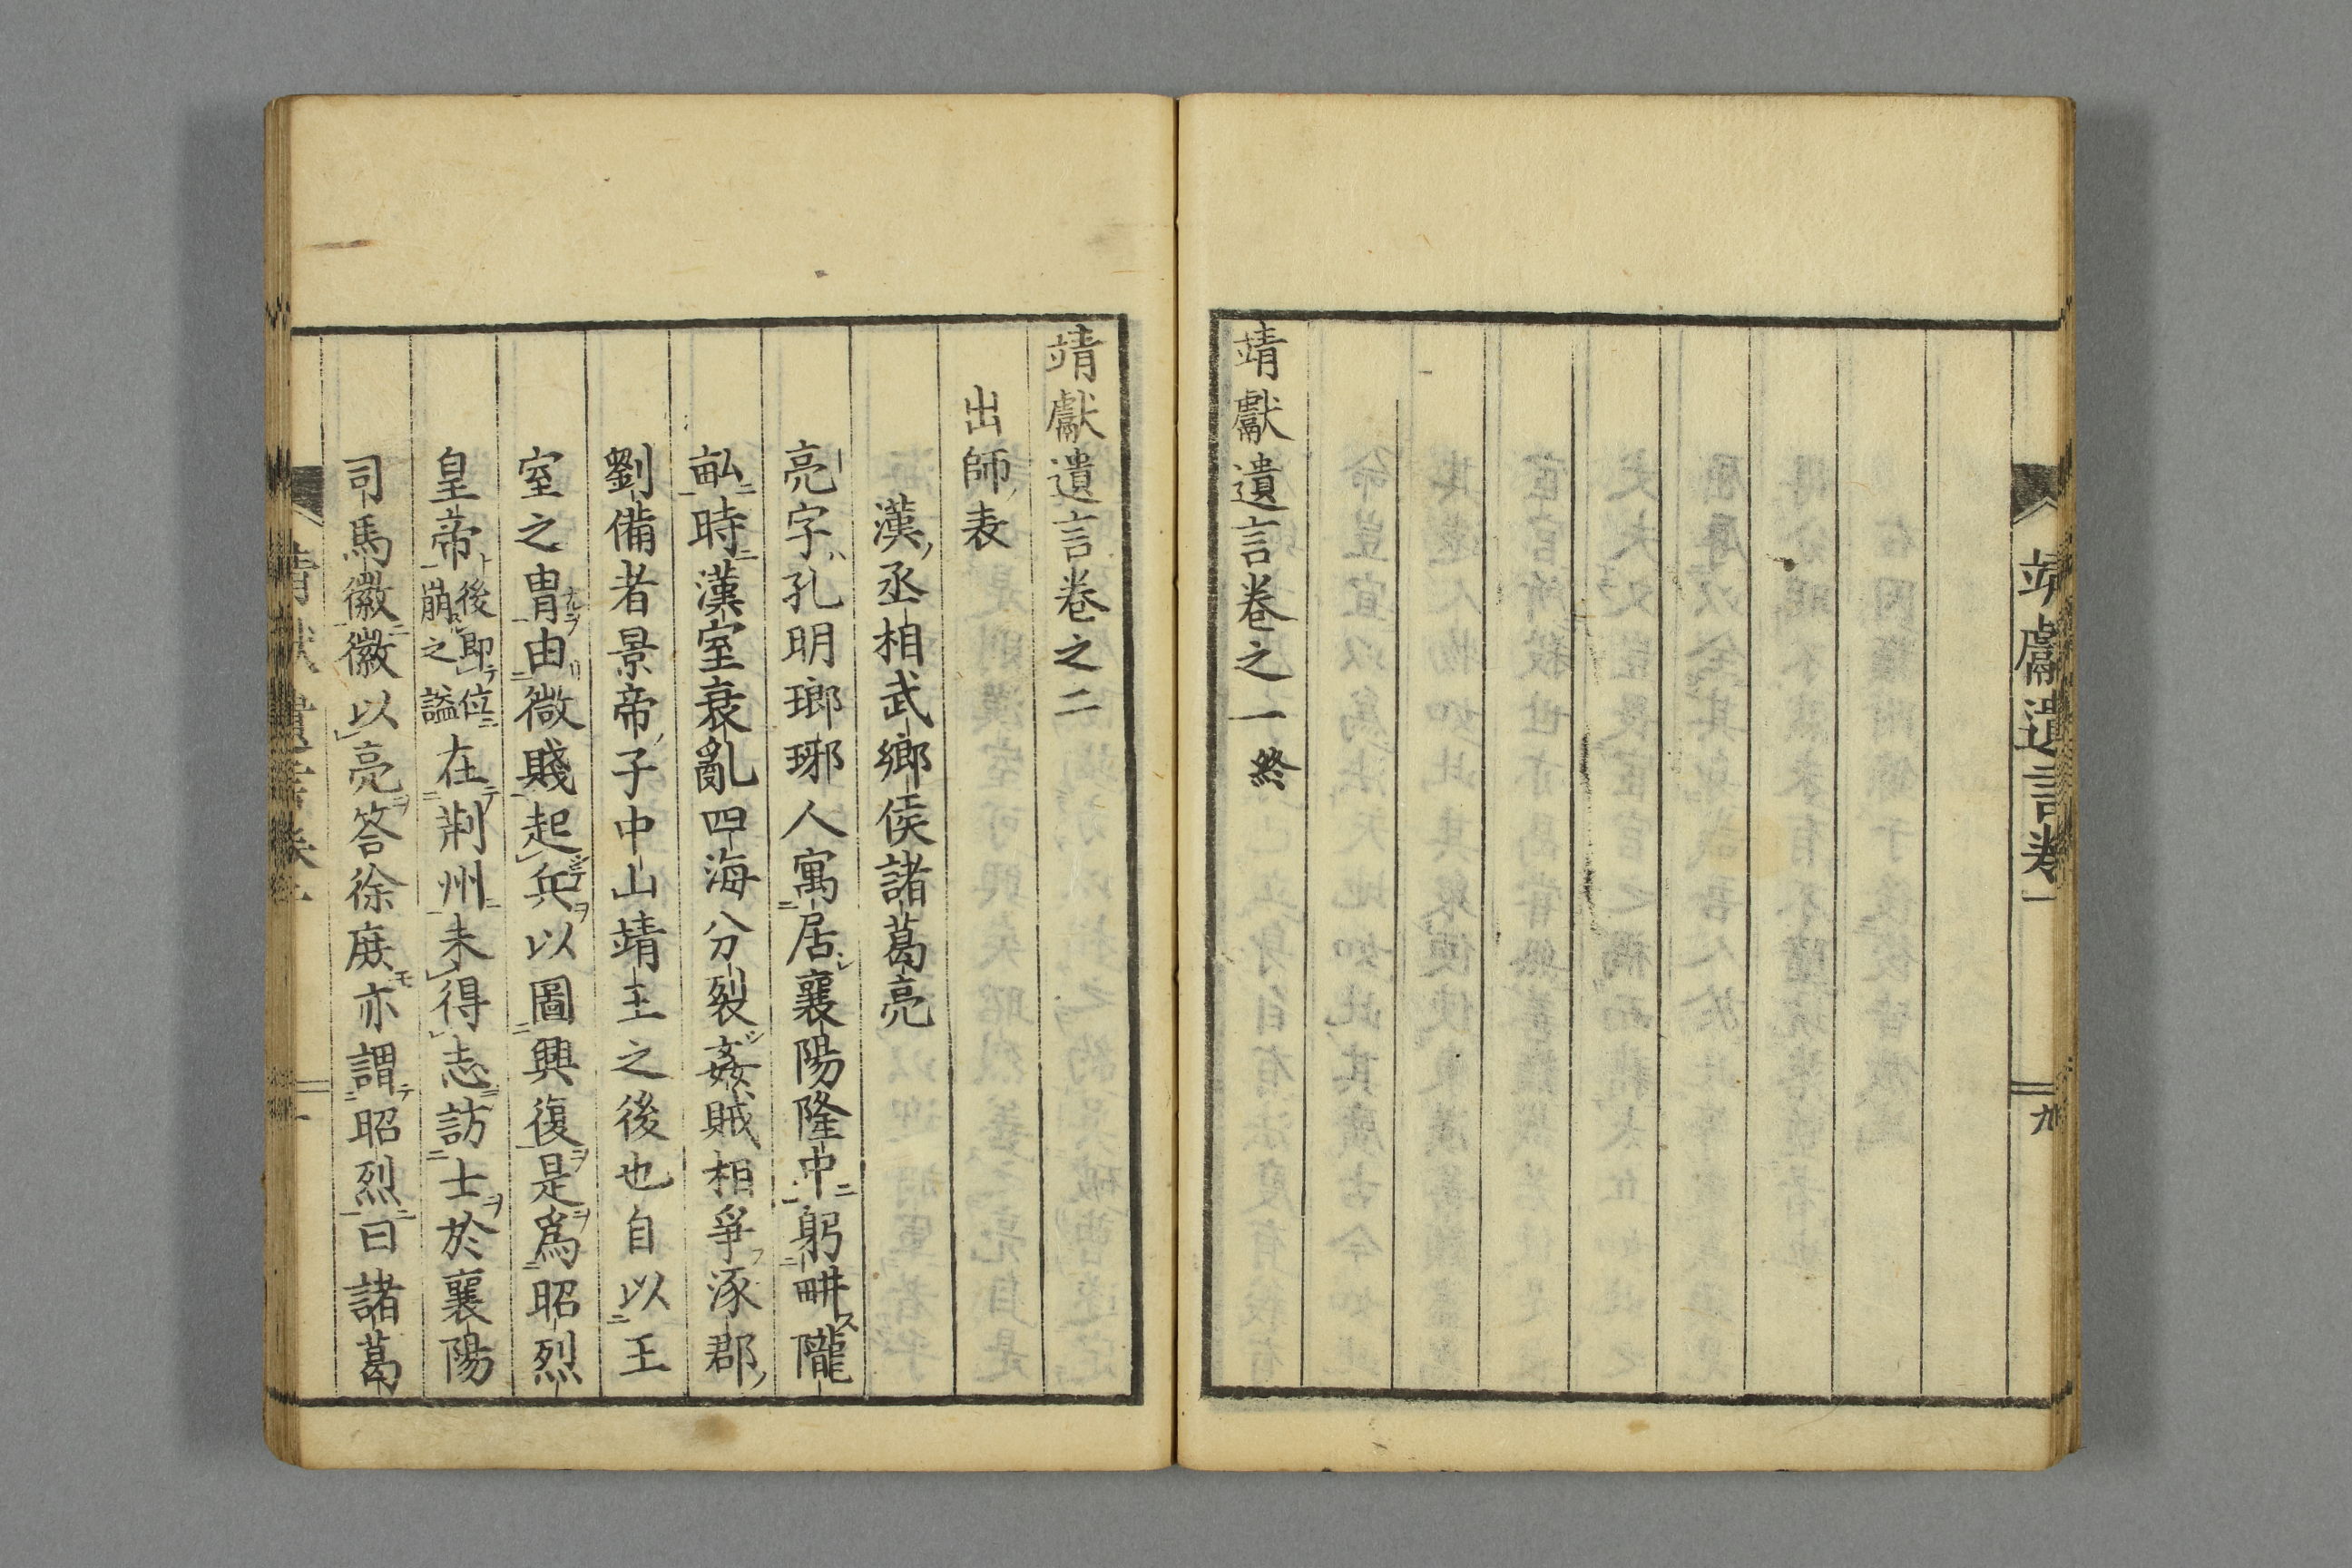 靖獻遺言卷一
九
靖獻遺言卷之一終
靖獻遺言卷之二
出師表
漢丞相武鄉侯諸葛亮
亮字孔明瑯琊人寓居襄陽隆中躬畊隴
畝時漢室衰亂四海分裂姦賊相爭涿郡
劉備者景帝子中山靖王之後也自以王
室之冑由微賤起兵以圖興復是爲昭烈
皇帝後即位崩之謚在荊州未得志訪士於襄陽
司馬徽徽以亮答徐庶亦謂昭烈曰諸葛